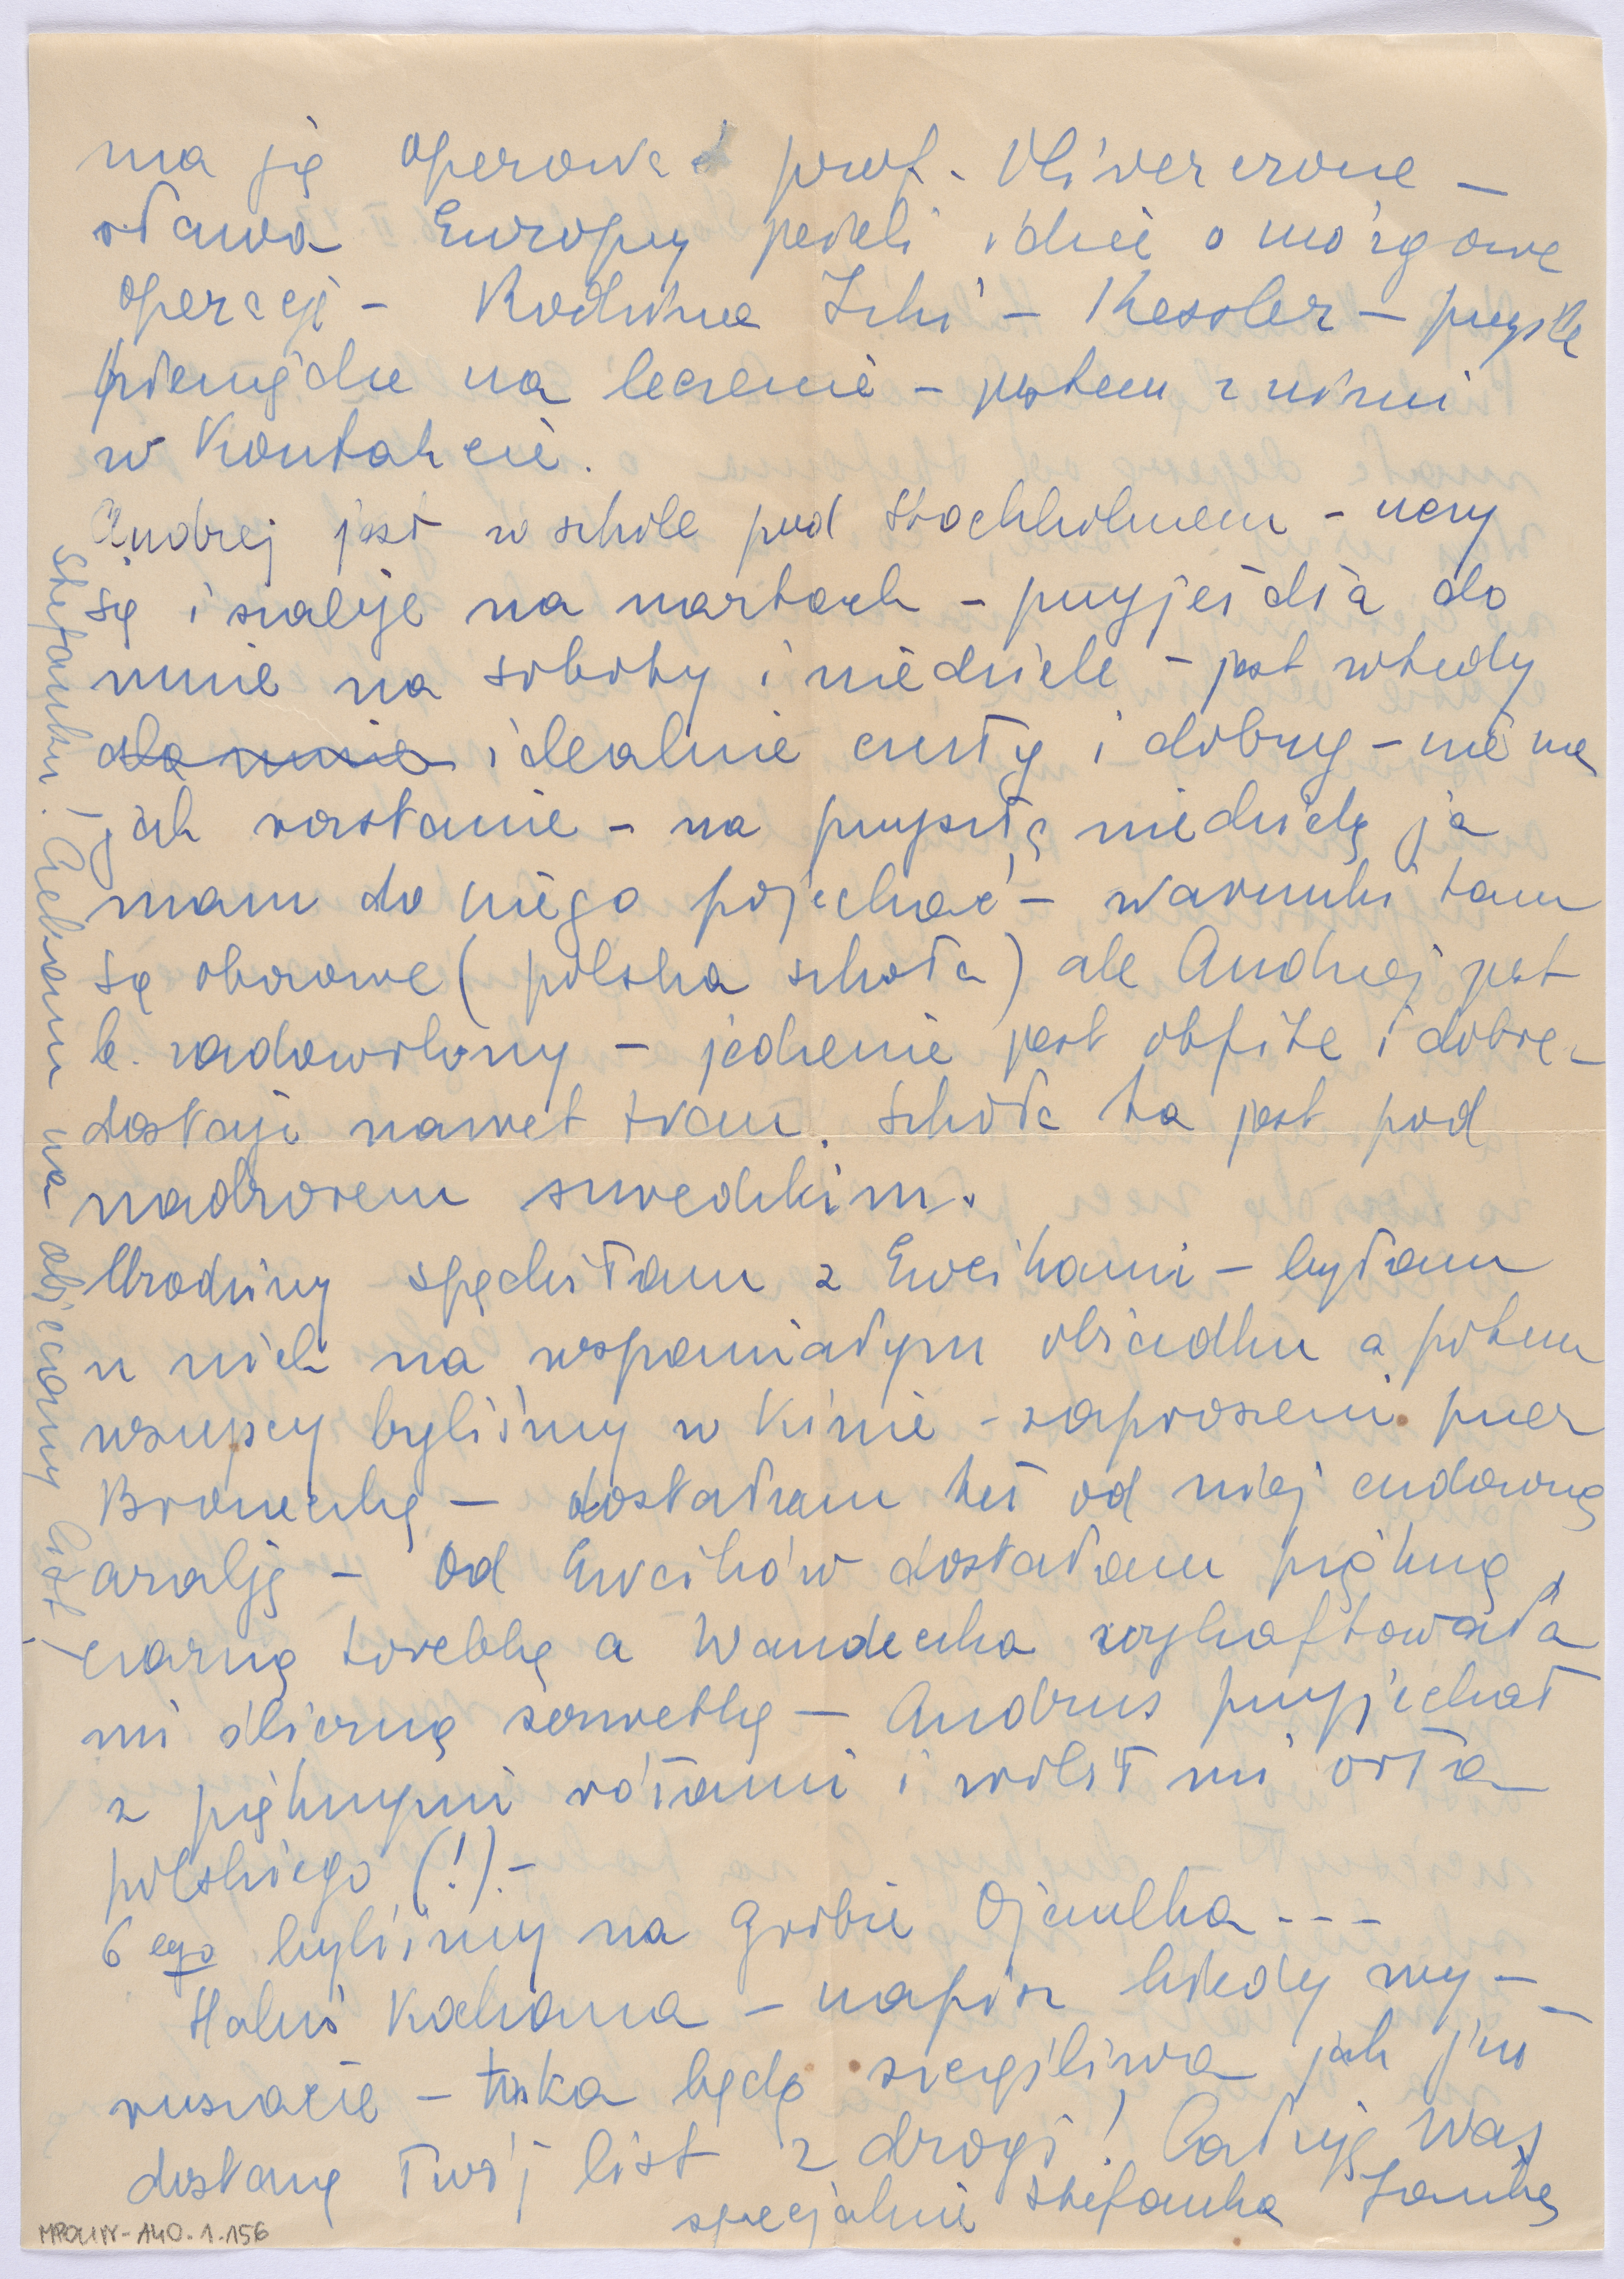 ma ją operować prof. Olivercrone —
sława Europy jeżeli idzie o mózgowe
operacje — Rodzina Lilci — Kessler — przyśle
pieniądze na leczenie — jestem z nimi
w kontakcie.
Andrzej jest w szkole pod Stockholmem — uczy
się i szaleje na nartach — przyjeżdża do
mnie na soboty i niedziele — jest wtedy
dla mnie idealnie czuły i dobry — nie ma
jak rozstanie — na przyszłą niedzielę ja
mam do niego pojechać — warunki tam
są obozowe (polska szkoła) ale Andrzej jest
b. zadowolony — jedzenie jest obfite i dobre —
dostają nawet tran. Szkoła ta jest pod
nadzorem szwedzkim.
Urodziny spędziłam z Ewcikami — byłam
u nich na wspaniałym obiadku a potem
wszyscy byliśmy w kinie — zaproszeni przez
Broneczkę — dostałam też od niej cudowną
azalję — Od Ewcików dostałam piękną
czarną torebkę a Wandeczka wyhaftowała
mi śliczną serwetkę — Andrus przyjechał
z pięknymi różami i zrobił mi orła
polskiego (!) —
6 ego byliśmy na grobie Ojczulka - - -
Haluś Kochana — napisz kiedy wy-
ruszacie — taka będę szczęśliwa jak już
dostanę Twój list z drogi! Całuję Was
specjalnie Stefanka Janka
Stefanku! Czekam na obiecany list!
MPOLIN-A40.1.156